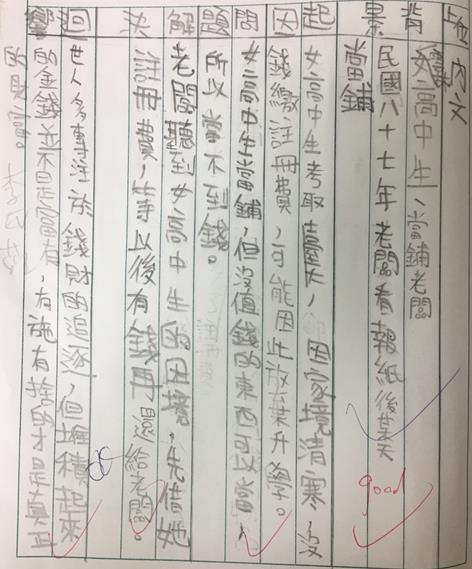 內文
背景
女高中生、當鋪老闆
民國八十七年,老闆看報紙後某天
當鋪
起因
女高中生考取臺大,因家境清寒沒
錢繳註冊費,可能因此放棄升學。
問題
女高中生當鋪,但沒值錢的東西可以當,
所以當不到錢。
解決
老闆聽到女高中生的困境,先借她
註冊費,等以後有錢再還給老闆。
迴響
世人多專注於錢財的追逐,但堆積起來
的金錢並不是富有,有施有捨的才是真正
的財富。
good